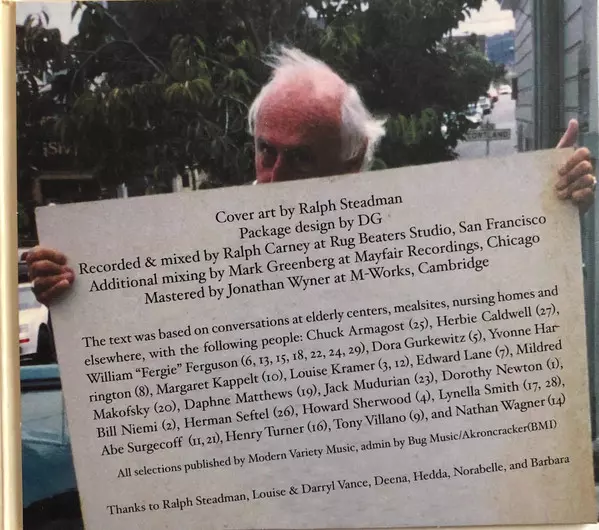 Cover art by Ralph Steadman
Package design by DG
Recorded & mixed by Ralph Carney at Rug Beaters Studio, San Francisco
Additional mixing by Mark Greenberg at Mayfair Recordings, Chicago
Mastered by Jonathan Wyner at M-Works, Cambridge
The text was based on conversations at elderly centers, mealsites, nursing homes and
elsewhere, with the following people: Chuck Armagost (25), Herbie Caldwell (27),
William "Fergie" Ferguson (6, 13, 15, 18, 22, 24, 29), Dora Gurkewitz (5), Yvonne Har-
rington (8), Margaret Kappelt (10), Louise Kramer (3, 12), Edward Lane (7), Mildred
Makofsky (20), Daphne Matthews (19), Jack Mudurian (23), Dorothy Newton (1),
Bill Niemi (2), Herman Seftel (26), Howard Sherwood (4), Lynella Smith (17, 28),
Abe Surgecoff (11, 21), Henry Turner (16), Tony Villano (9), and Nathan Wagner (14)
All selections published by Modern Variety Music, admin by Bug Music/Akroncracker(BMI)
Thanks to Ralph Steadman, Louise & Darryl Vance, Deena, Hedda, Norabelle, and Barbara